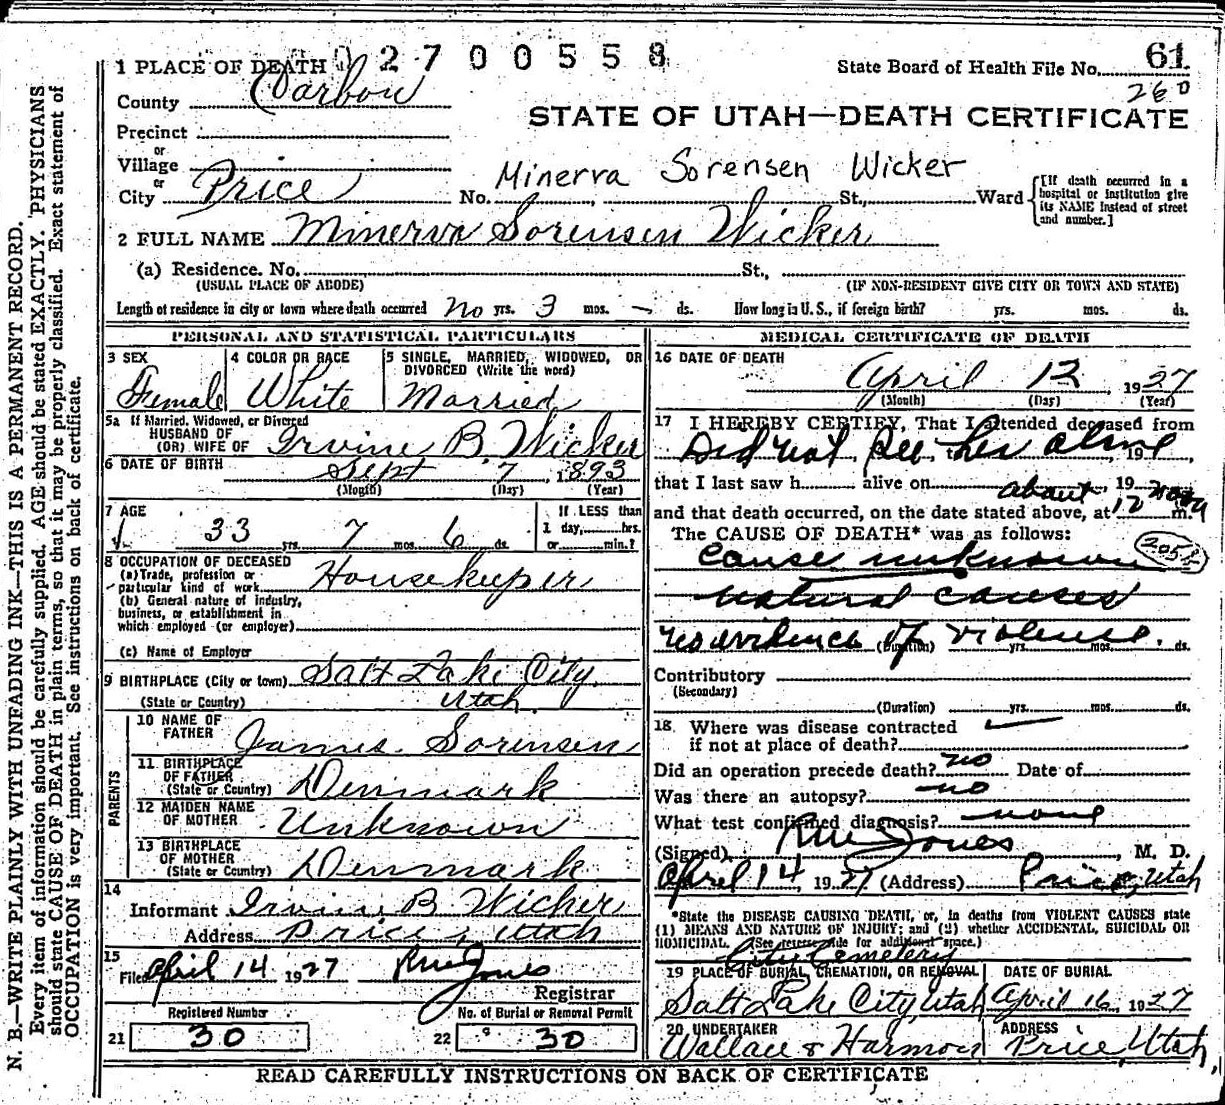 02700558
61
State Board of Health File No.
260
STATE OF UTAH—DEATH CERTIFICATE
1 PLACE OF DEATH
County Carbon
Precinct
or
Village
or
City Price No. St., Ward
Minerva Sorensen Wicker
[If death occurred in a hospital or institution give its NAME instead of street and number.]
2 FULL NAME Minerva Sorensen Wicker
(a) Residence. No. St.,
(USUAL PLACE OF ABODE) (IF NON-RESIDENT GIVE CITY OR TOWN AND STATE)
Length of residence in city or town where death occurred no yrs. 3 mos. - ds. How long in U. S., if foreign birth? yrs. mos. ds.
PERSONAL AND STATISTICAL PARTICULARS
3 SEX
Female
4 COLOR OR RACE
White
5 SINGLE, MARRIED, WIDOWED, OR
DIVORCED (Write the word)
Married
5a If Married, Widowed, or Divorced
HUSBAND OF
(OR) WIFE OF Irvine B. Wicker
6 DATE OF BIRTH Sept 7, 1893
(Month) (Day) (Year)
7 AGE
33 yrs. 7 mos. 6 ds.
If LESS than
1 day, hrs.
or min.?
8 OCCUPATION OF DECEASED
(a) Trade, profession or
particular kind of work Housekeeper
(b) General nature of industry,
business, or establishment in
which employed (or employer)
(c) Name of Employer
9 BIRTHPLACE (City or town) Salt Lake City,
(State or Country) Utah.
PARENTS
10 NAME OF
FATHER James Sorensen
11 BIRTHPLACE
OF FATHER
(State or Country) Denmark
12 MAIDEN NAME
OF MOTHER Unknown
13 BIRTHPLACE
OF MOTHER
(State or Country) Denmark
14
Informant Irvine B Wicker
Address Price, Utah
15
Filed April 14 1927
Jones
Registrar
Registered Number
21 30
No. of Burial or Removal Permit
22 30
MEDICAL CERTIFICATE OF DEATH
16 DATE OF DEATH
April 12, 1927
(Month) (Day) (Year)
17 I HEREBY CERTIFY, That I attended deceased from
Did not see her alive, 19
that I last saw h alive on 19
about 12 noon
and that death occurred, on the date stated above, at m.
The CAUSE OF DEATH* was as follows:
Cause unknown
natural causes
no evidence of violence.
(Duration) yrs. mos. ds.
Contributory
(Secondary)
(Duration) yrs. mos. ds.
18 Where was disease contracted
if not at place of death?
Did an operation precede death? no Date of
Was there an autopsy? no
What test confirmed diagnosis? none
(Signed) Jones, M. D.
April 14, 1927 (Address) Price, Utah
*State the DISEASE CAUSING DEATH, or, in deaths from VIOLENT CAUSES state
(1) MEANS AND NATURE OF INJURY; and (2) whether ACCIDENTAL, SUICIDAL OR
HOMICIDAL. (See reverse side for additional space.)
City Cemetery
19 PLACE OF BURIAL, CREMATION, OR REMOVAL
Salt Lake City, Utah
DATE OF BURIAL
April 16, 1927
20 UNDERTAKER
Wallace & Harmon
ADDRESS
Price, Utah,
READ CAREFULLY INSTRUCTIONS ON BACK OF CERTIFICATE
N. B.—WRITE PLAINLY WITH UNFADING INK—THIS IS A PERMANENT RECORD.
Every item of information should be carefully supplied. AGE should be stated EXACTLY. PHYSICIANS
should state CAUSE OF DEATH in plain terms, so that it may be properly classified. Exact statement of
OCCUPATION is very important. See instructions on back of certificate.